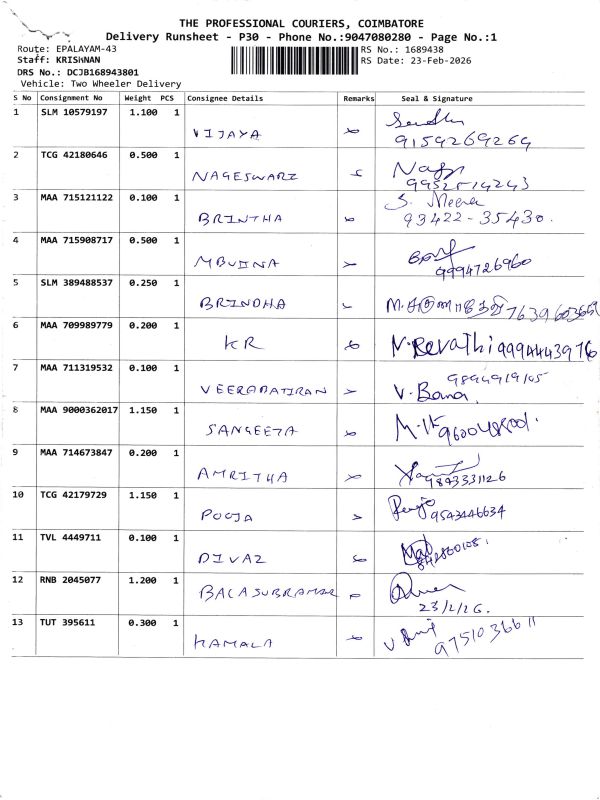 THE PROFESSIONAL COURIERS, COIMBATORE
Delivery Runsheet - P30 - Phone No.:9047080280 - Page No.:1
Route: EPALAYAM-43 RS No.: 1689438
Staff: KRISHNAN RS Date: 23-Feb-2026
DRS No.: DCJB168943801
Vehicle: Two Wheeler Delivery
S No Consignment No Weight PCS Consignee Details Remarks Seal & Signature
1 SLM 10579197 1.100 1 VIJAYA
9159269269
2 TCG 42180646 0.500 1 NAGESWARI
9952514243
3 MAA 715121122 0.100 1 BRINTHA S. Meena
93422-35430.
4 MAA 715908717 0.500 1
9994726960
5 SLM 389488537 0.250 1 BRINDHA
6 MAA 709989779 0.200 1 KR V.Revathi 9994443976
7 MAA 711319532 0.100 1 9894919105
8 MAA 9000362017 1.150 1 SANGEETA
9 MAA 714673847 0.200 1 AMRITHA
9843331126
10 TCG 42179729 1.150 1 POOJA 9543446634
11 TVL 4449711 0.100 1
12 RNB 2045077 1.200 1
23/2/26.
13 TUT 395611 0.300 1 KAMALA 9751036611